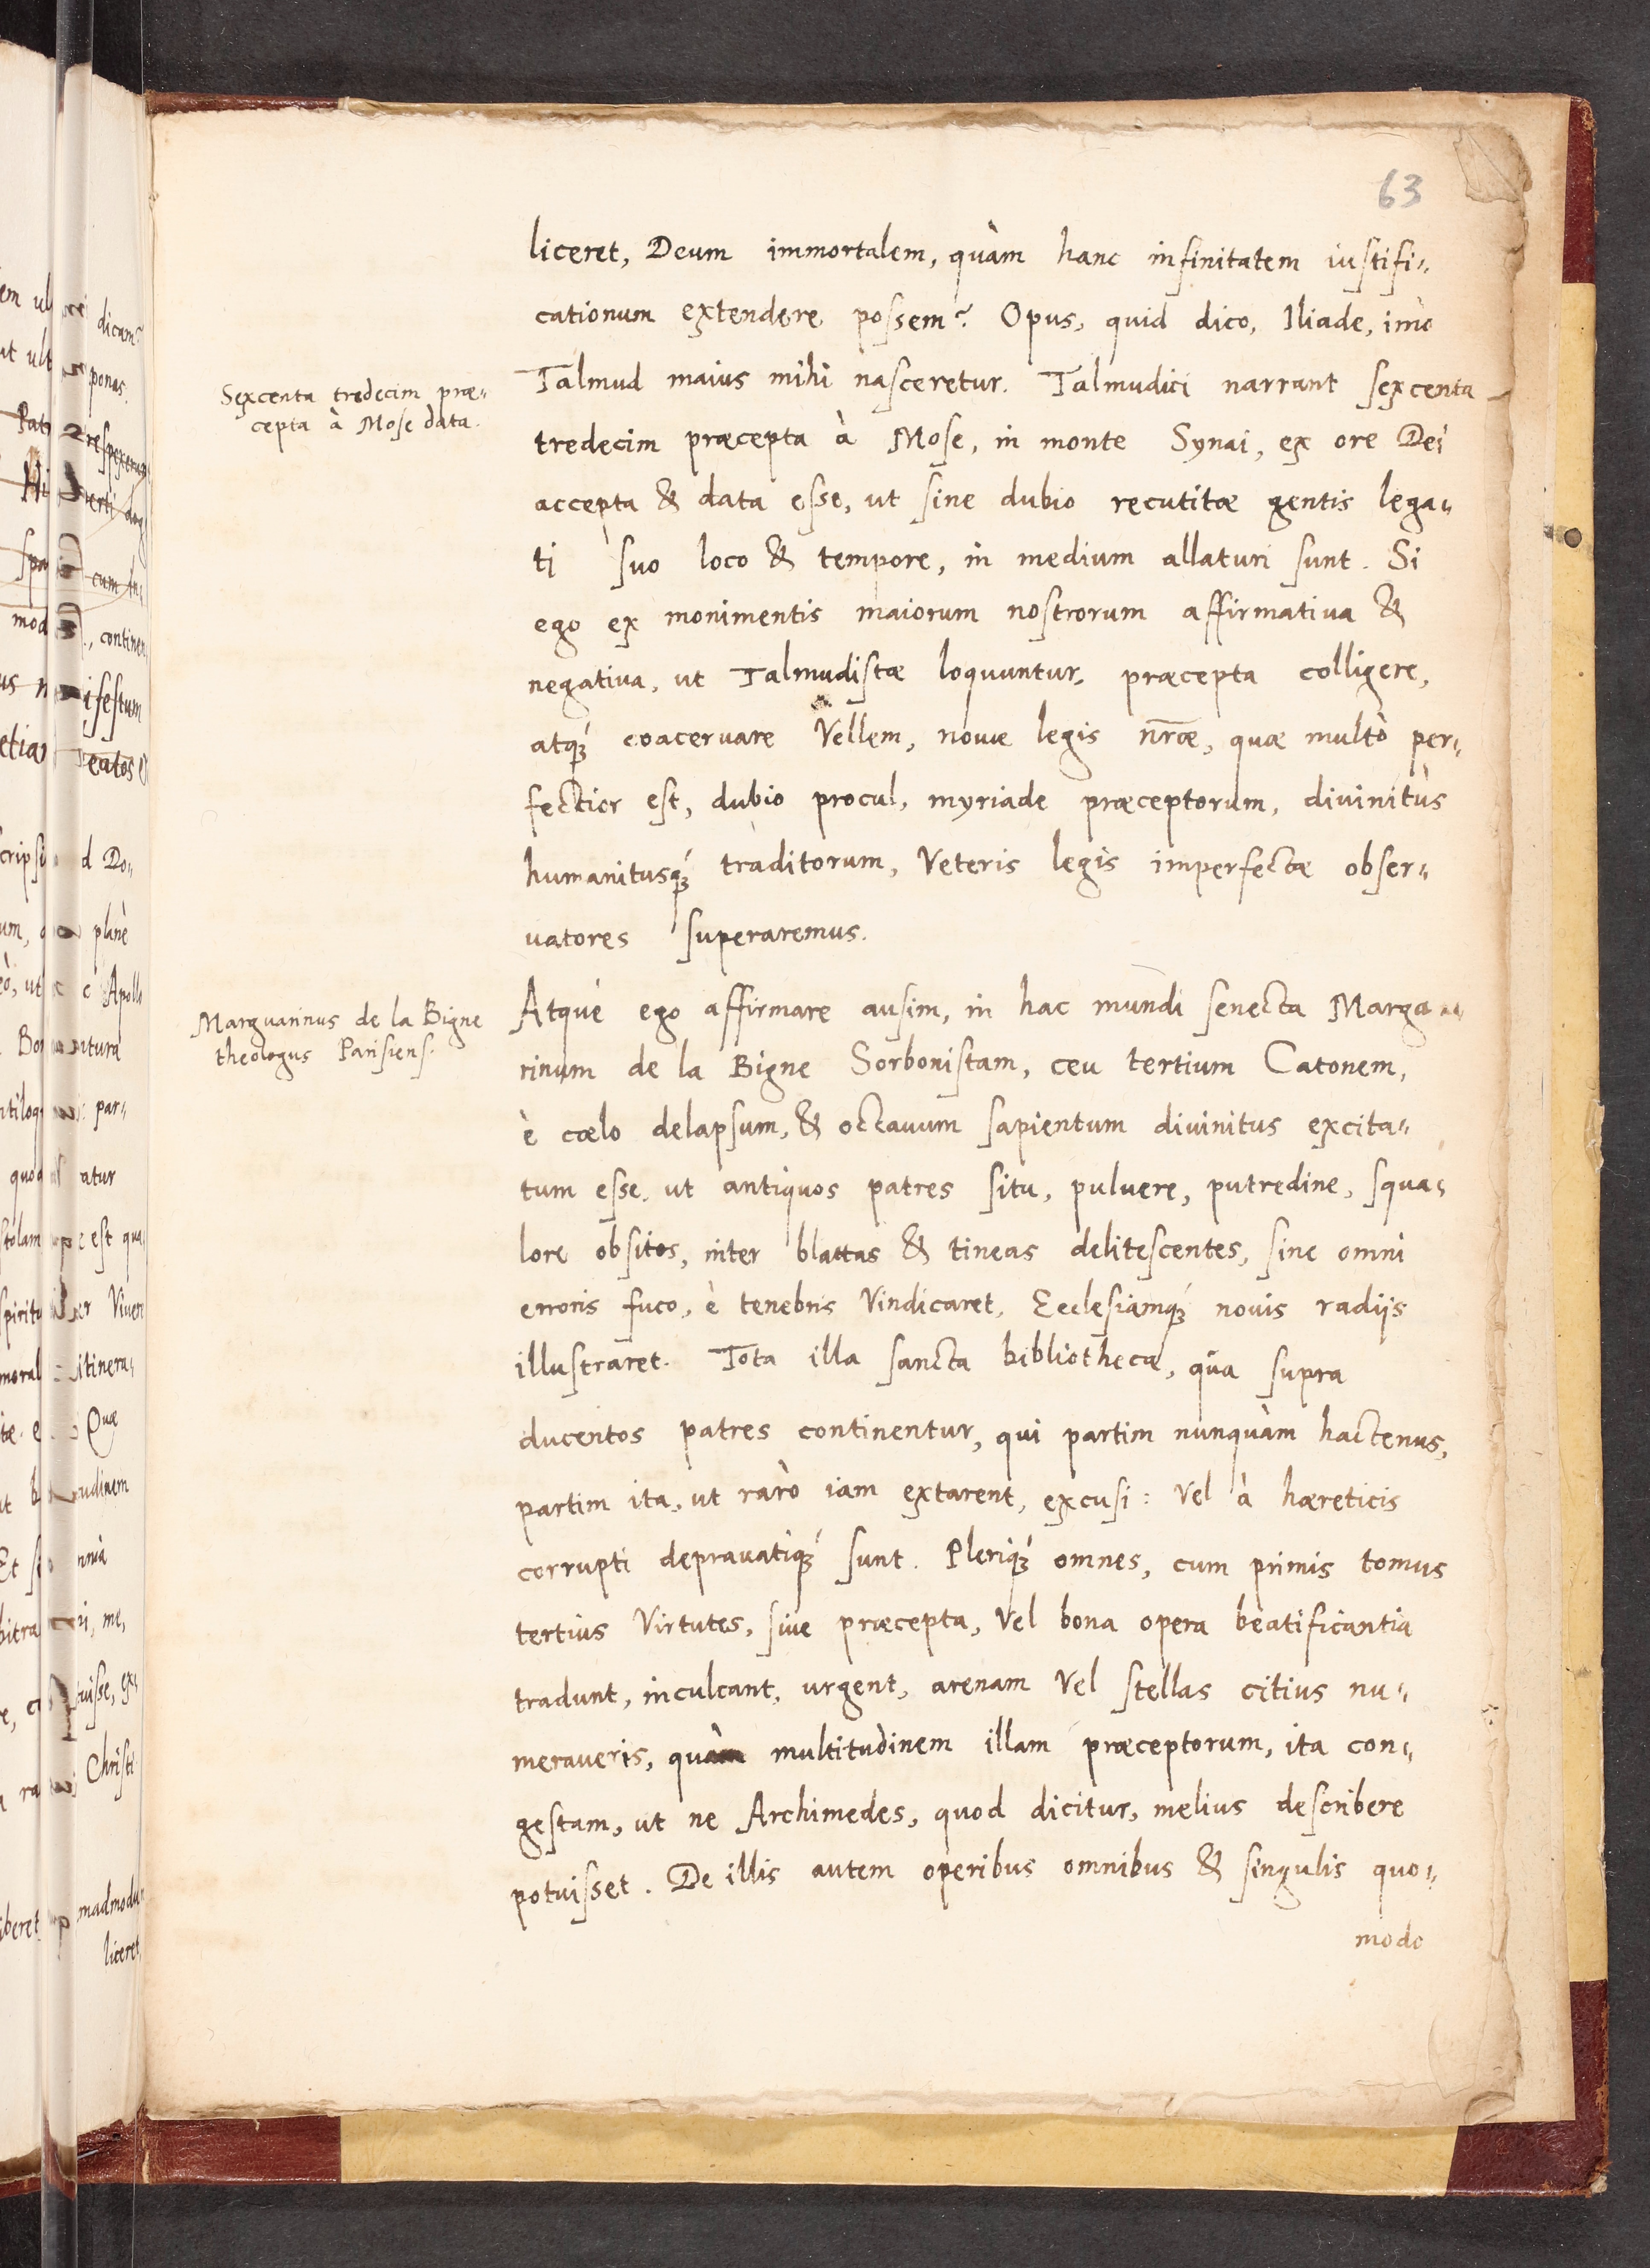 63
liceret, Deum immortalem, quàm hanc infinitatem iustifi-
cationum extendere possem? Opus, quid dico, Iliade, imò
Talmud maius mihi nasceretur. Talmudici narrant sexcenta
Sexcenta tredecim præ-
cepta à Mose data.
tredecim præcepta à Mose, in monte Synai, ex ore Dei
accepta & data esse, ut sine dubio recutitæ gentis lega-
ti suo loco & tempore, in medium allaturi sunt. Si
ego ex monimentis maiorum nostrorum affirmativa &
negatiua, ut Talmudistæ loquuntur, præcepta colligere,
atq́ꝫ coacervare Vellem, nouæ legis nr̃æ, quæ multò per-
fectior est, dubio procul, myriade præceptorum, divinitùs
humanitusq́ꝫ traditorum, Veteris legis imperfectæ obser-
uatores superaremus.
Atque ego affirmare ausim, in hac mundi senecta Marga
Marguarinus de la Bigne
theologus Parisiens.
rinum de la Bigne Sorbonistam, ceu tertium Catonem,
è cœlo delapsum, & octauum sapientum diuinitus excita-
tum esse, ut antiquos patres situ, puluere, putredine, squa-
lore obsitos, inter blattas & tineas delitescentes, sine omni
erroris fuco, è tenebris Vindicaret, Ecclesiamq́ꝫ nouis radijs
illustraret. Tota illa sancta bibliotheca, qūa supra
ducentos patres continentur, qui partim nunquàm hactenus,
partim ita, ut rarò iam extarent, excusi: Vel à hæreticis
corrupti deprauatiq́ꝫ sunt. Pleriq́ꝫ omnes, cum primis tomus
tertius Virtutes, siue præcepta, Vel bona opera beatificantia
tradunt, inculcant, urgent, arenam Vel stellas citius nu-
meraveris, quàm multitudinem illam præceptorum, ita con-
gestam, ut ne Archimedes, quod dicitur, melius describere
potuisset. De illis autem operibus omnibus & singulis quo-
modo